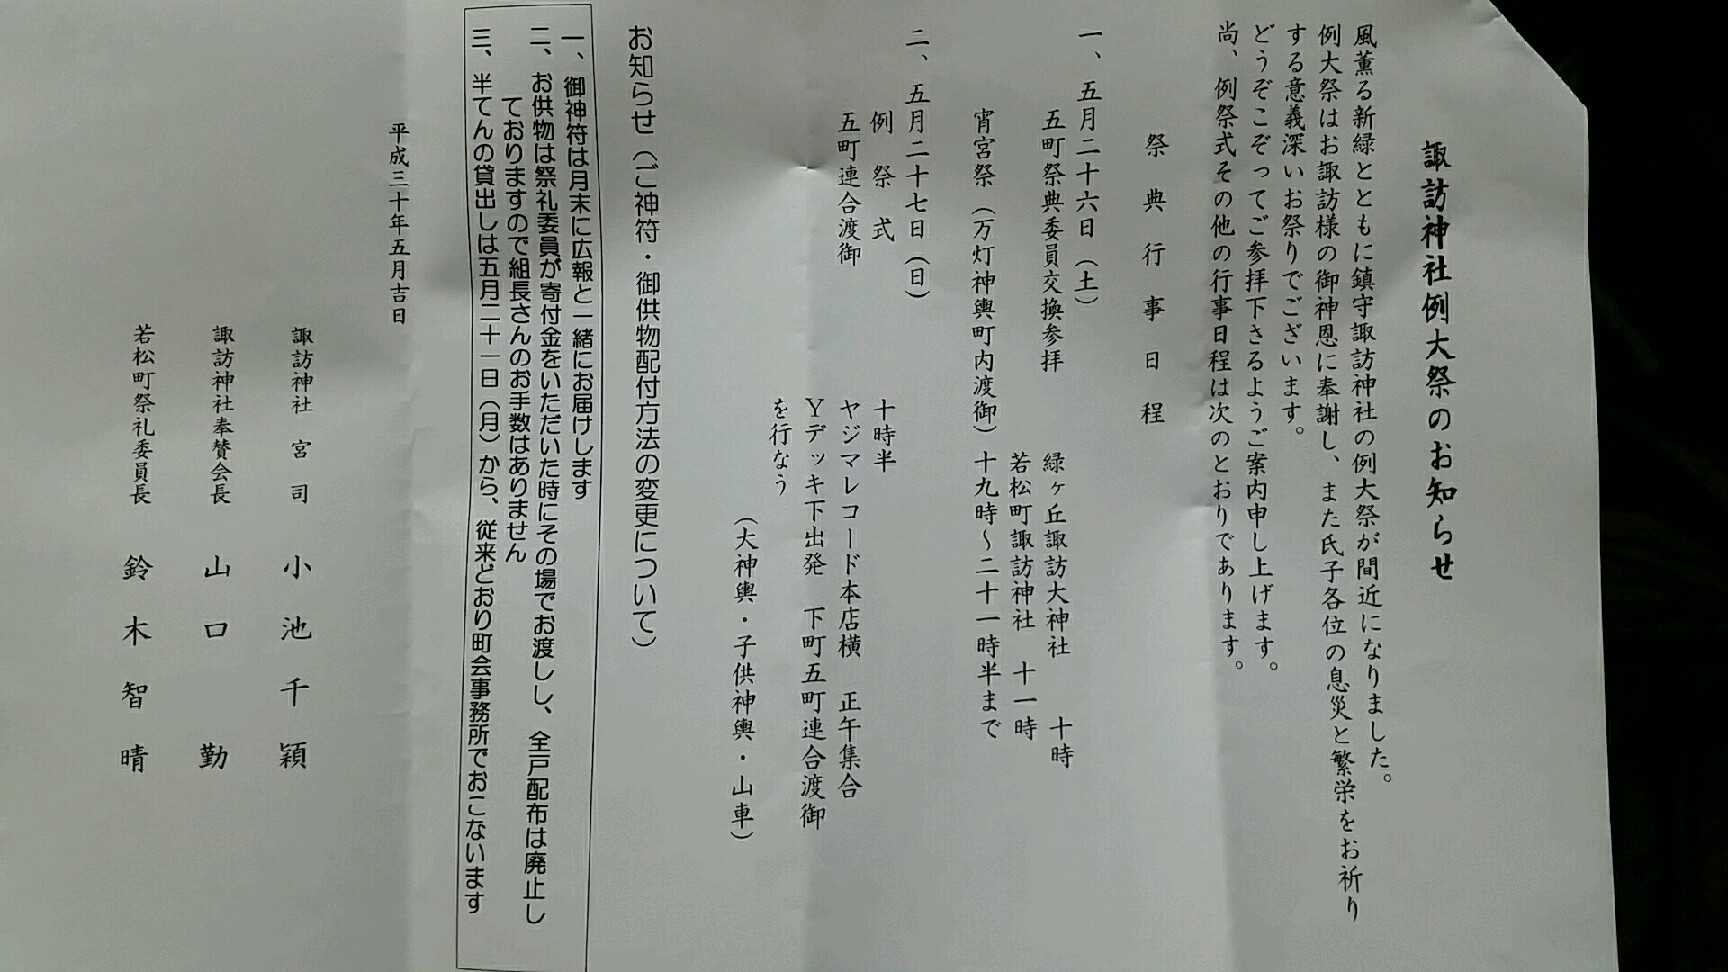 諏訪神社例大祭のお知らせ
風薫る新緑とともに鎮守諏訪神社の例大祭が間近になりました。
例大祭はお諏訪様の御神恩に奉謝し、また氏子各位の息災と繁栄をお祈り
する意義深いお祭りでございます。
どうぞこぞってご参拝下さるようご案内申し上げます。
尚、例祭式その他の行事日程は次のとおりであります。
祭典行事日程
一、五月二十六日（土）
五町祭典委員交換参拝 緑ヶ丘諏訪大神社 十時
若松町諏訪神社 十一時
宵宮祭（万灯神輿町内渡御）十九時～二十一時半まで
二、五月二十七日（日）
例祭式 十時半
五町連合渡御 ヤジマレコード本店横 正午集合
Ｙデッキ下出発 下町五町連合渡御
を行なう
（大神輿・子供神輿・山車）
お知らせ（ご神符・御供物配付方法の変更について）
一、御神符は月末に広報と一緒にお届けします
二、お供物は祭礼委員が寄付金をいただいた時にその場でお渡しし、全戸配布は廃止し
ておりますので組長さんのお手数はありません
三、半てんの貸出しは五月二十一日（月）から、従来どおり町会事務所でおこないます
平成三十年五月吉日
諏訪神社 宮司 小池千穎
諏訪神社奉賛会長 山口勤
若松町祭礼委員長 鈴木智晴